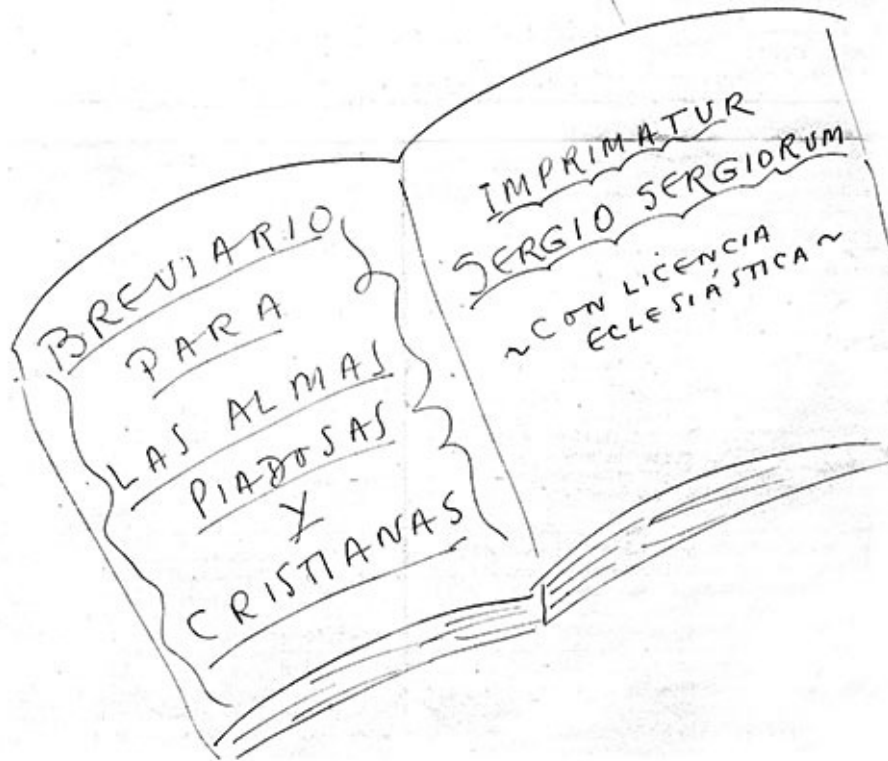 BREVIARIO
PARA
LAS ALMAS
PIADOSAS
Y
CRISTIANAS
IMPRIMATUR
SERGIO SERGIORUM
~CON LICENCIA
ECLESIÁSTICA~